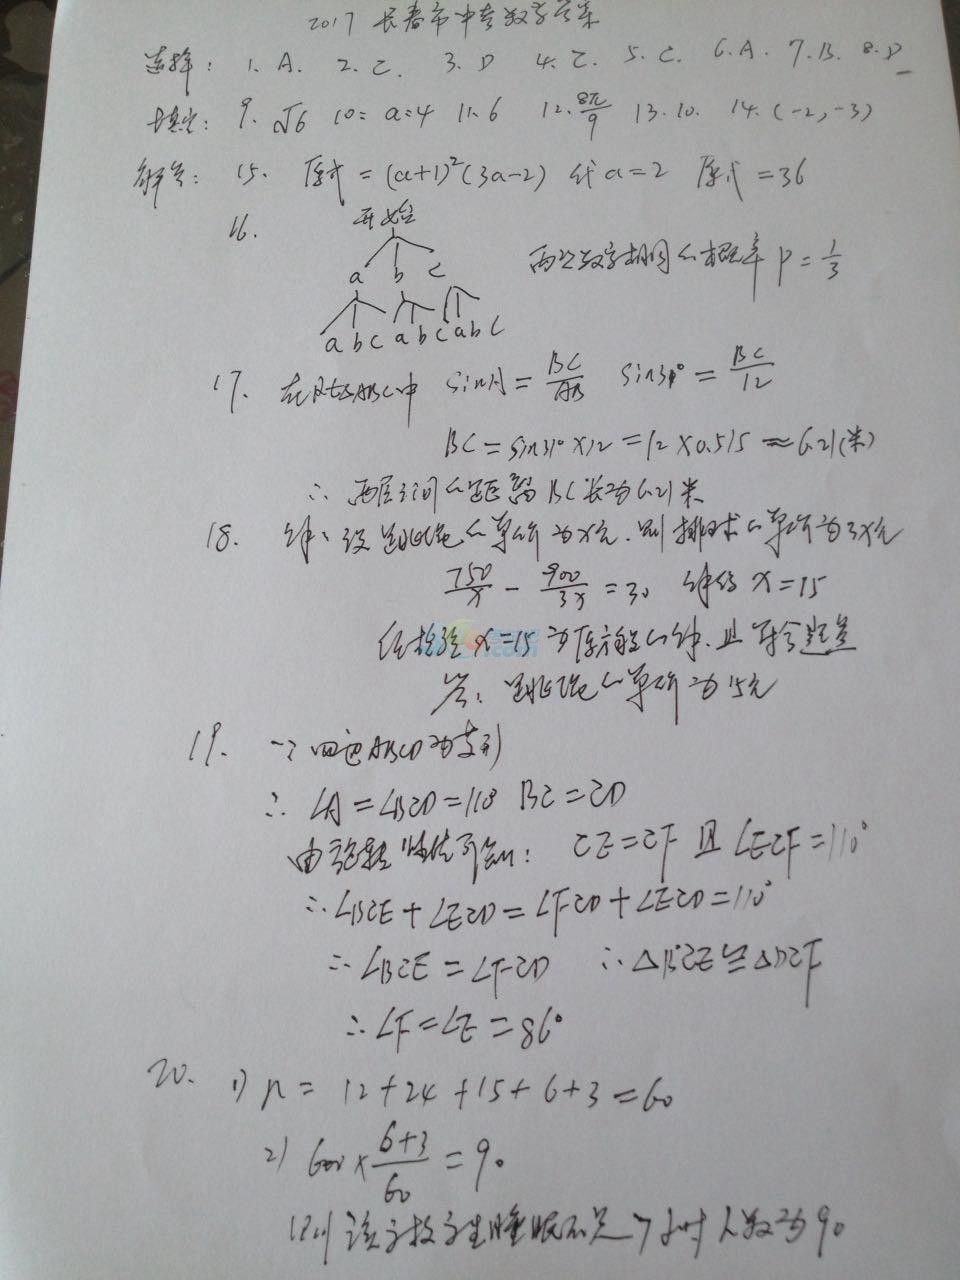 2017 长春市中考数学答案
选择: 1. A. 2. C. 3. D 4. C. 5. C. 6. A. 7. B. 8. D
填空: 9. √6 10: a=4 11. 6 12. 8π/9 13. 10. 14. (-2,-3)
解答: 15. 原式=(a+1)²(3a-2) 代a=2 原式=36
16. 开始
a b c
两次数字相同的概率 P=1/3
a b c a b c a b c
17. 在Rt△ABC中 sinA=BC/AB sin31°=BC/12
BC=sin31°×12=12×0.515≈6.21(米)
∴ 两层之间的距离BC长为6.21米
18. 解: 设跳绳的单价为x元. 则排球的单价为3x元
750/x - 900/3x = 30 解得 x=15
经检验 x=15 为原方程的解. 且符合题意
答: 跳绳的单价为15元
19. ∵四边ABCD为菱形
∴ ∠A=∠BCD=110° BC=CD
由旋转性质可知: CE=CF 且∠ECF=110°
∴∠BCE+∠ECD=∠FCD+∠ECD=110°
∴∠BCE=∠FCD ∴△BCE≌△DCF
∴∠F=∠E=86°
20. 1) n=12+24+15+6+3=60
2) 600×(6+3)/60=90
该学校学生睡眠不足7小时人数为90